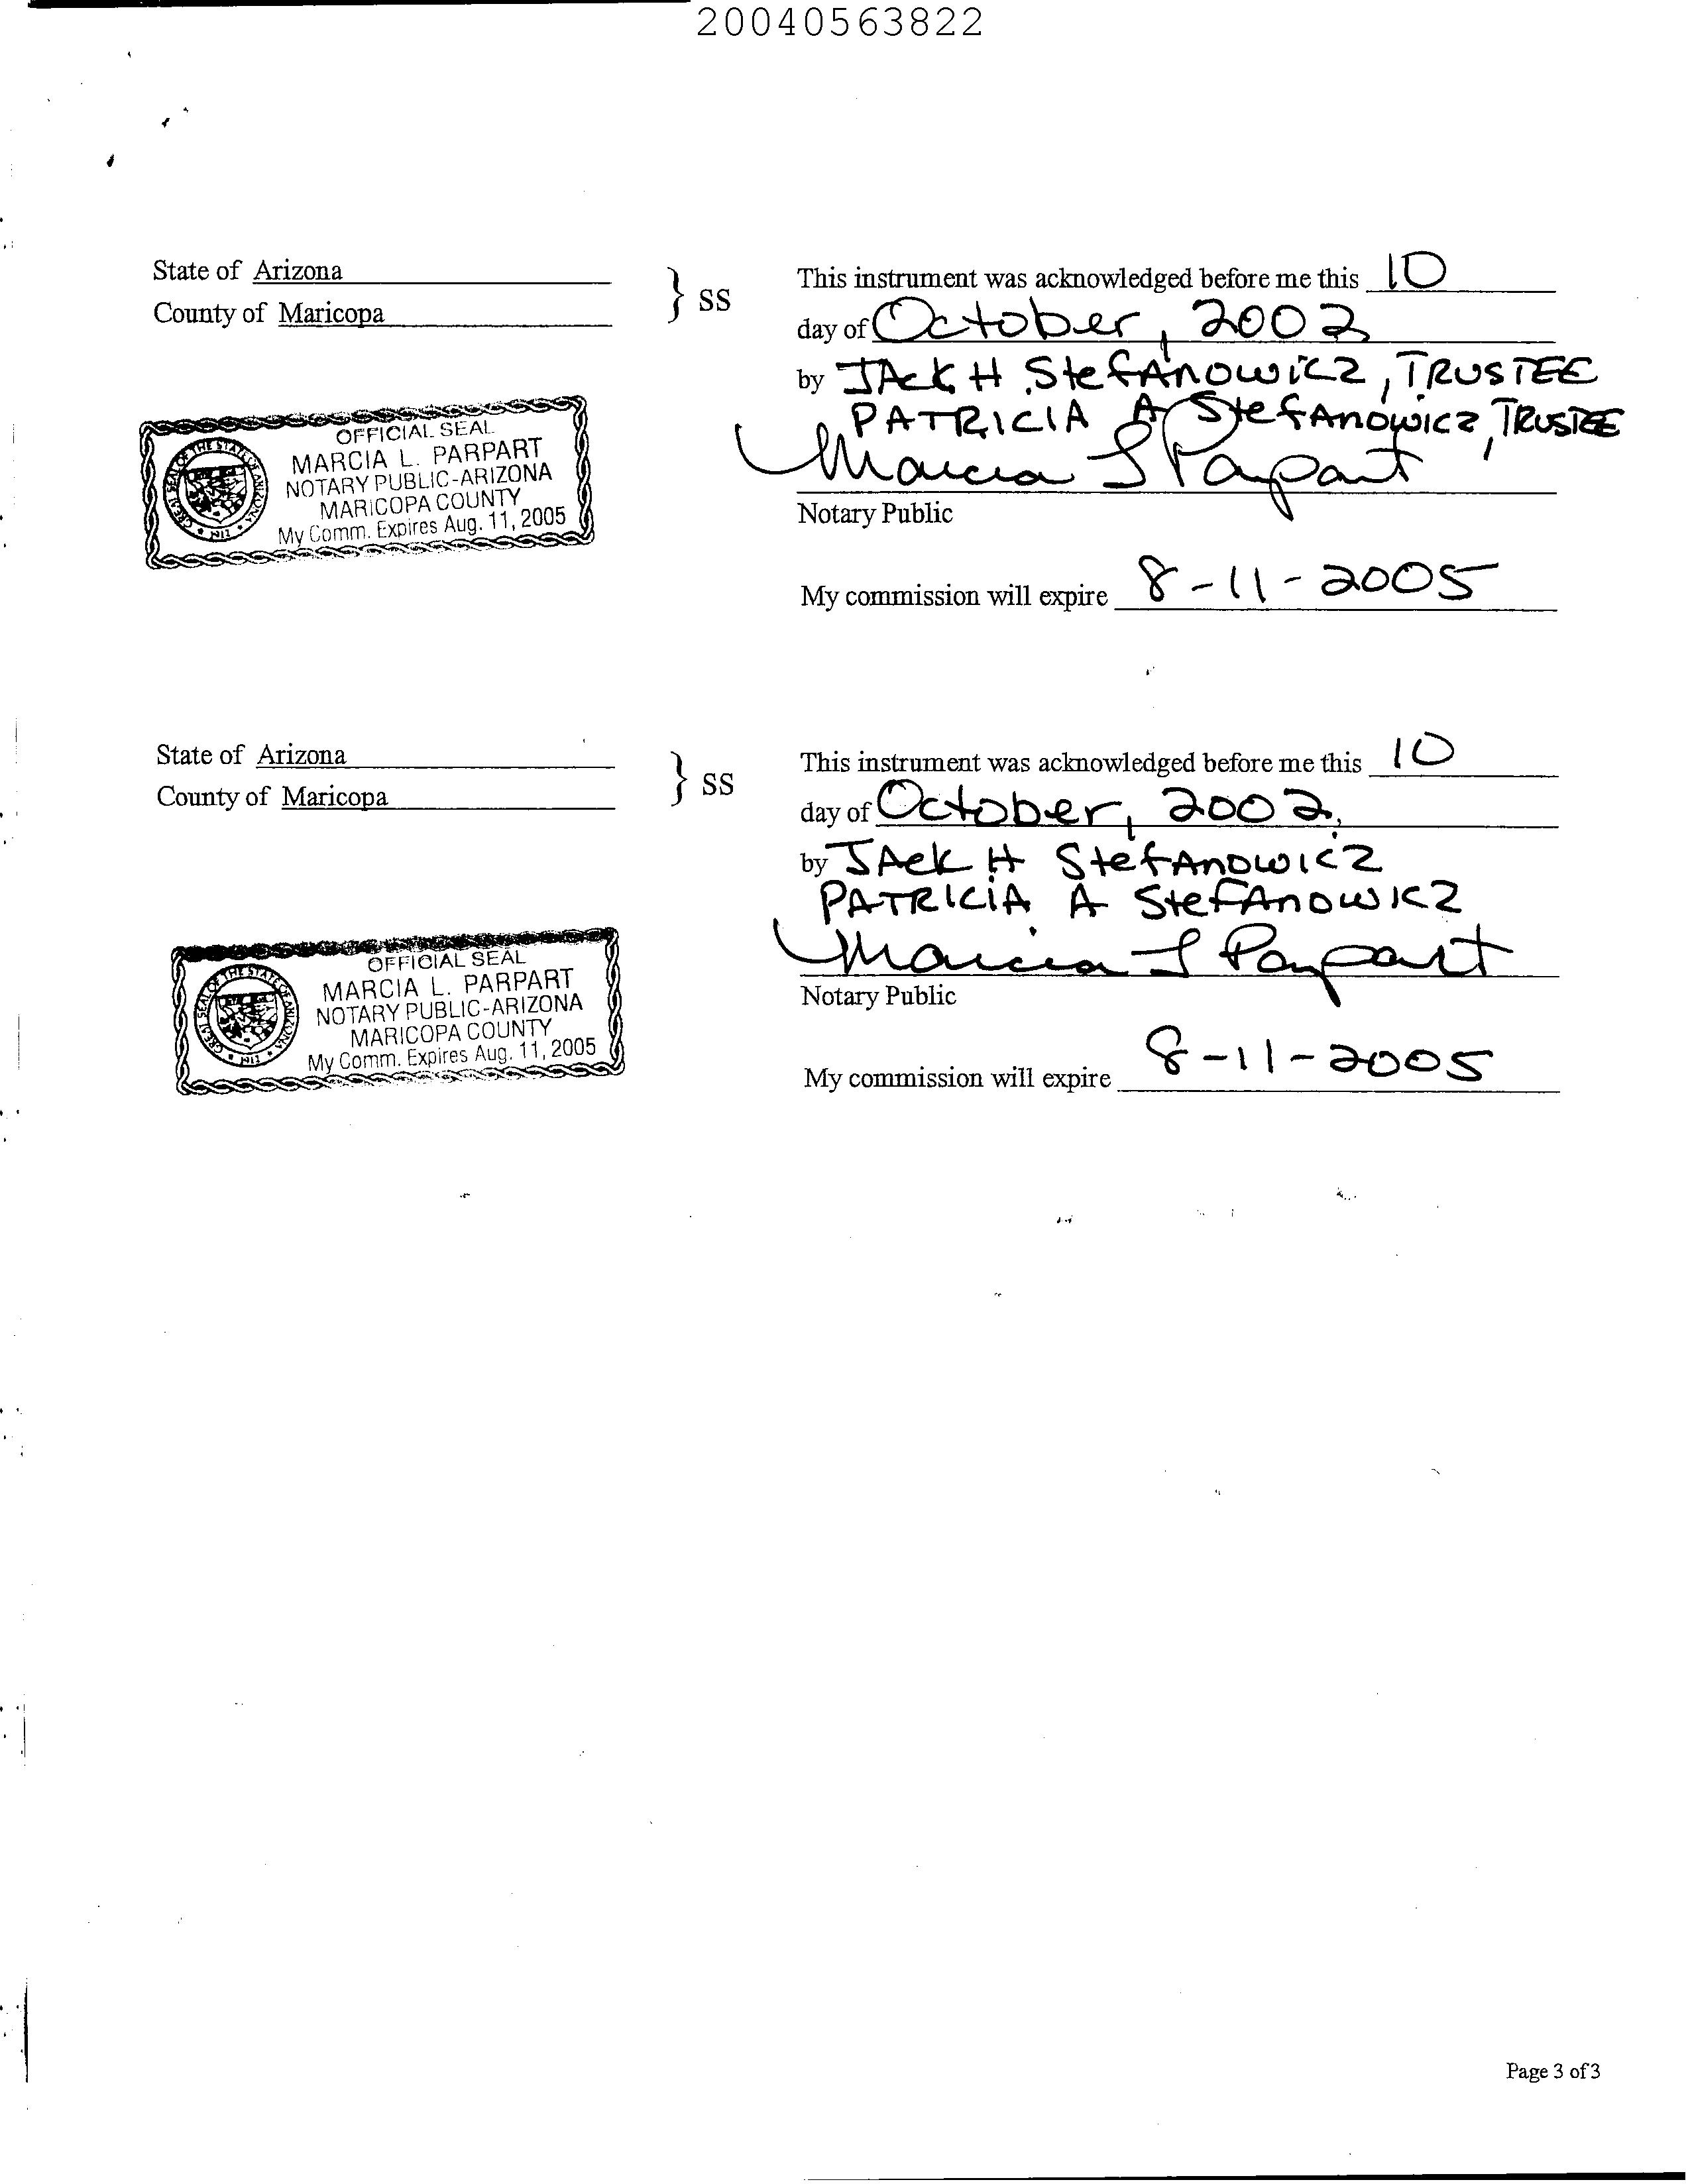 20040563822
State of Arizona
County of Maricopa
} SS
This instrument was acknowledged before me this 10
day of October, 2002
by JAck H StefAnowicz, TRUSTEE
PATRICIA A StefAnowicz, TRUSTEE
Marcia L Parpart
Notary Public
My commission will expire 8-11-2005
OFFICIAL SEAL
MARCIA L. PARPART
NOTARY PUBLIC-ARIZONA
MARICOPA COUNTY
My Comm. Expires Aug. 11, 2005
GREAT SEAL OF THE STATE OF ARIZONA
1912
State of Arizona
County of Maricopa
} SS
This instrument was acknowledged before me this 10
day of October, 2002,
by JAck H StefAnowicz
PATRICIA A StefAnowicz
Marcia L Parpart
Notary Public
My commission will expire 8-11-2005
OFFICIAL SEAL
MARCIA L. PARPART
NOTARY PUBLIC-ARIZONA
MARICOPA COUNTY
My Comm. Expires Aug. 11, 2005
GREAT SEAL OF THE STATE OF ARIZONA
1912
Page 3 of 3